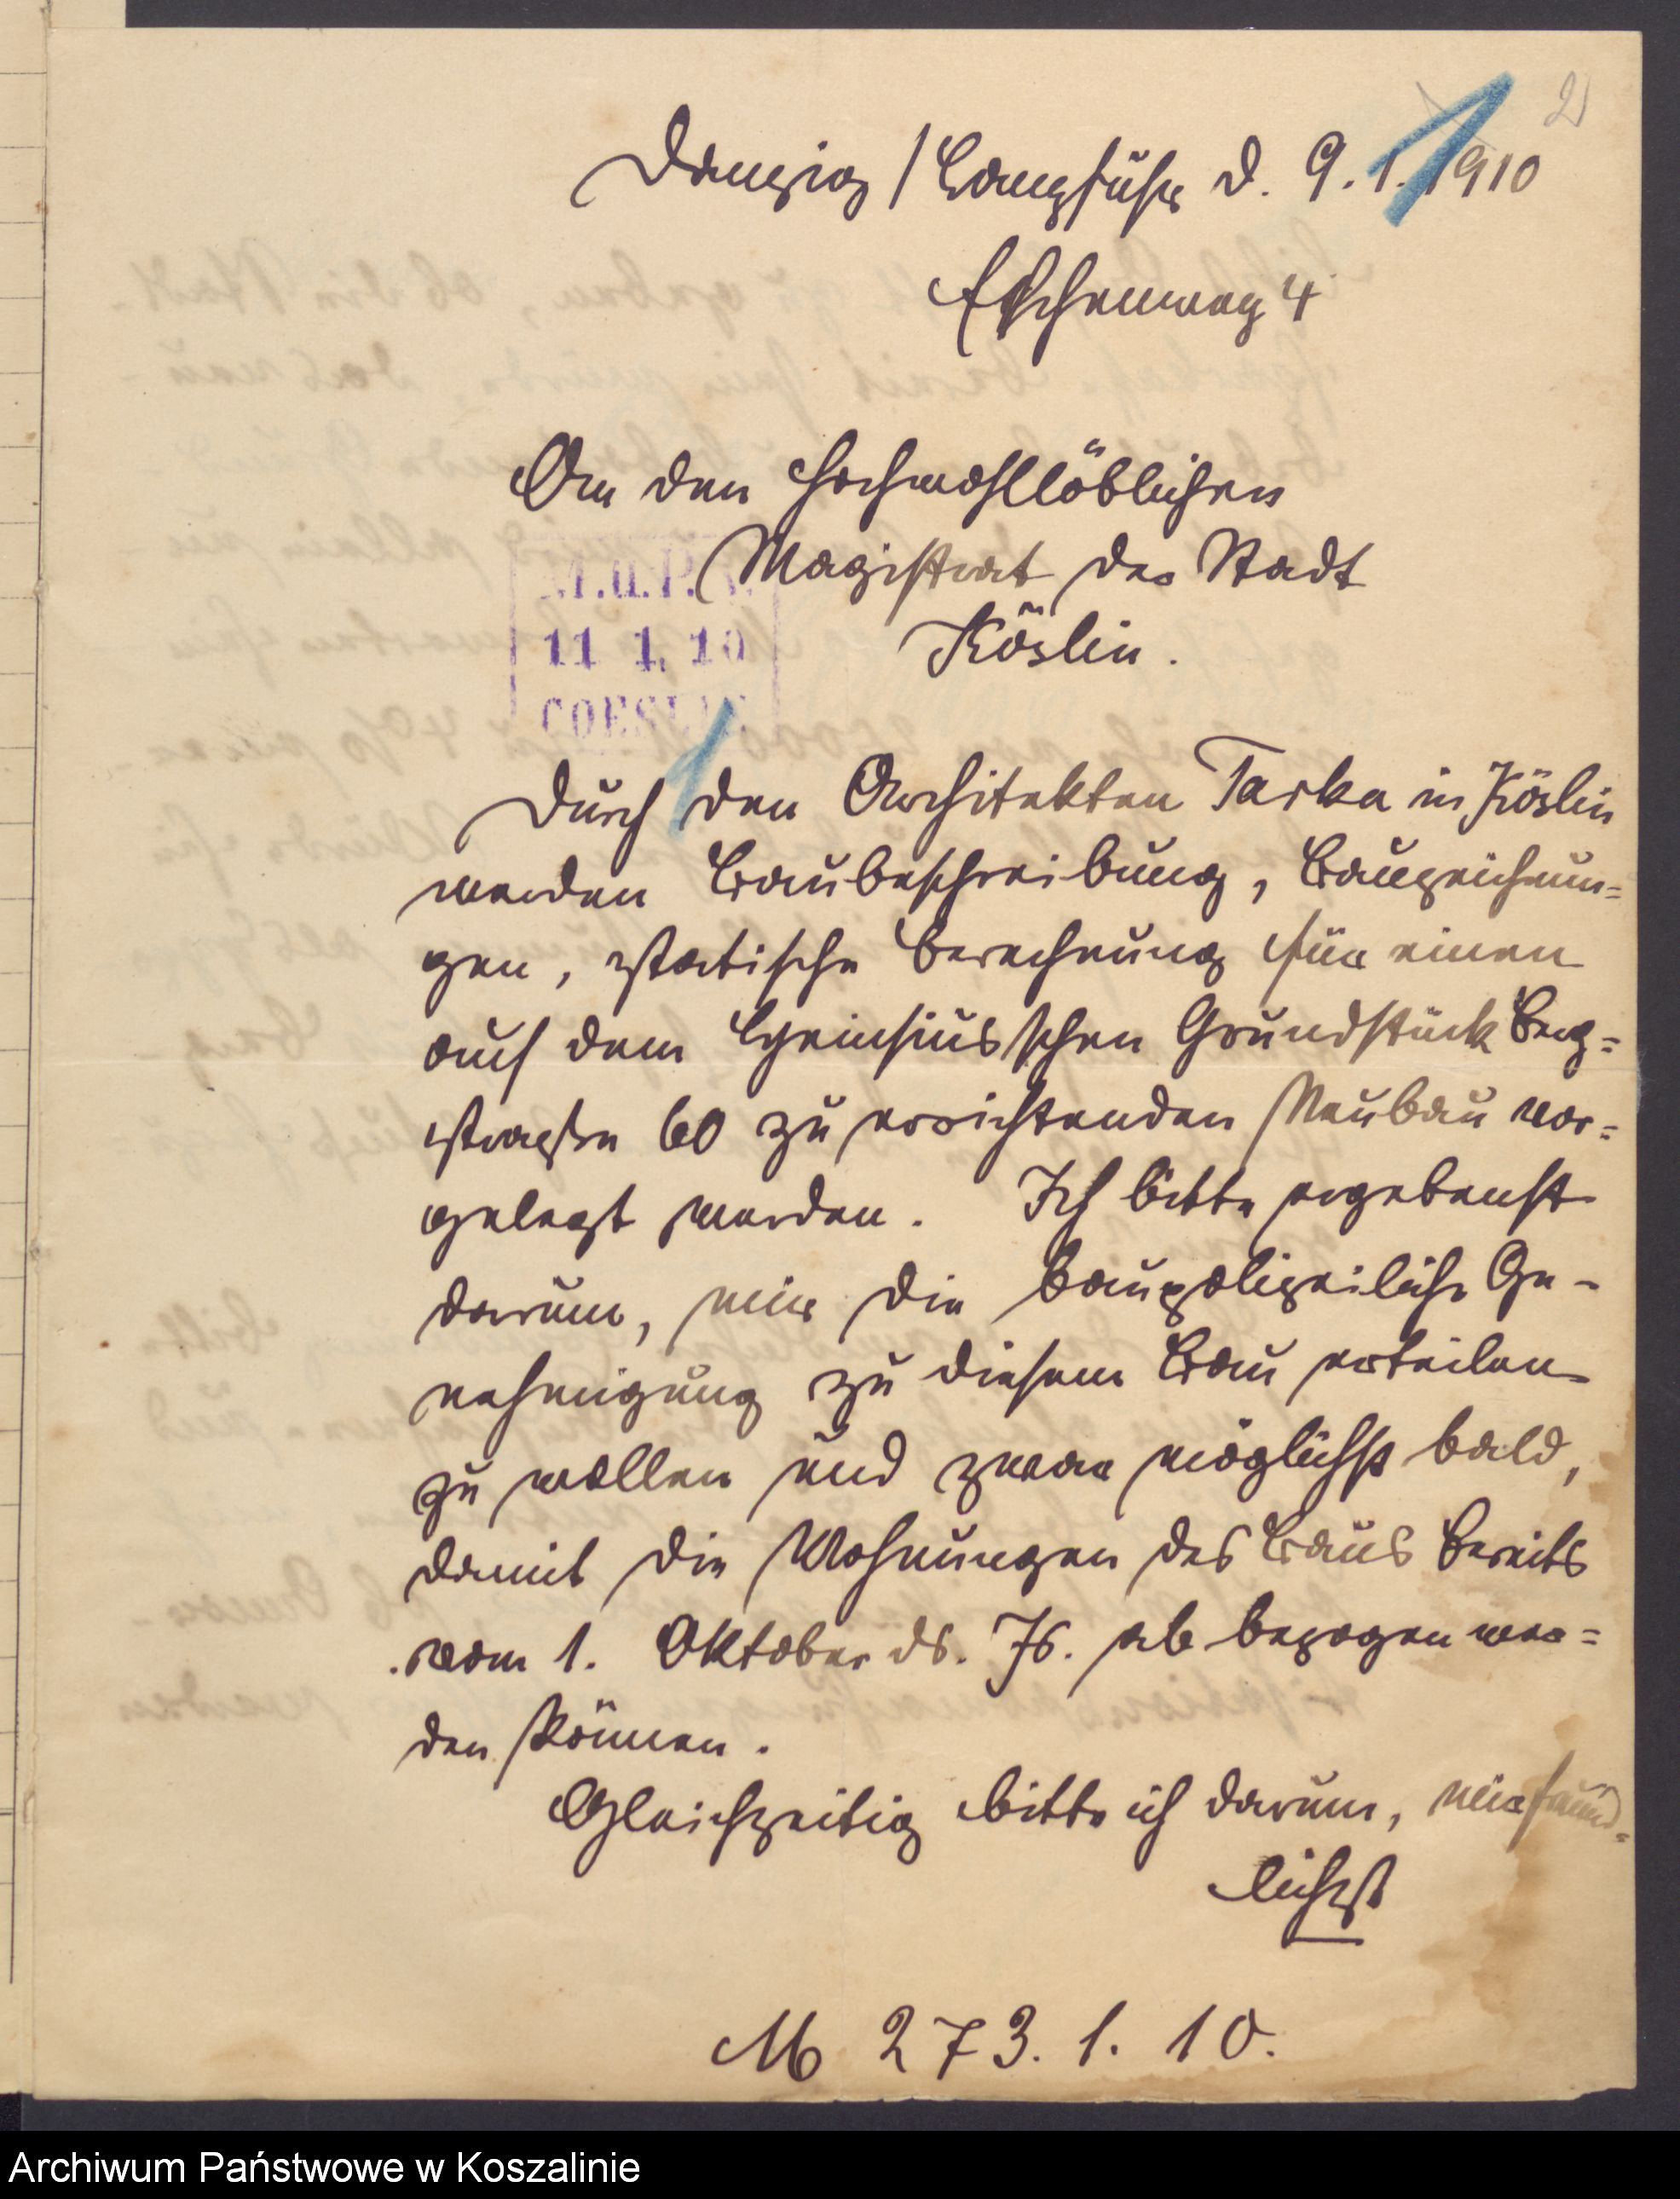 2
Danzig / Langfuhr d. 9.1.1910
Eschenweg 4
An den hochwohllöblichen
Magistrat der Stadt
Köslin.
11 1. 10
Durch den Architekten Tarka in Köslin
werden Baubeschreibung, Bauzeichnun=
gen, statische Berechnung für einen
auf dem Heinsius'schen Grundstück Berg=
straße 60 zu errichtenden Neubau vor=
gelegt werden. Ich bitte ergebenst
darum, mir die baupolizeiliche Ge-
nehmigung zu diesem Bau erteilen
zu wollen und zwar möglichst bald,
damit die Wohnungen des Baus bereits
vom 1. Oktober ds. Js. ab bezogen wer=
den können.
Gleichzeitig bitte ich darum, mir freund=
lichst
M 273. 1. 10.
Archiwum Państwowe w Koszalinie